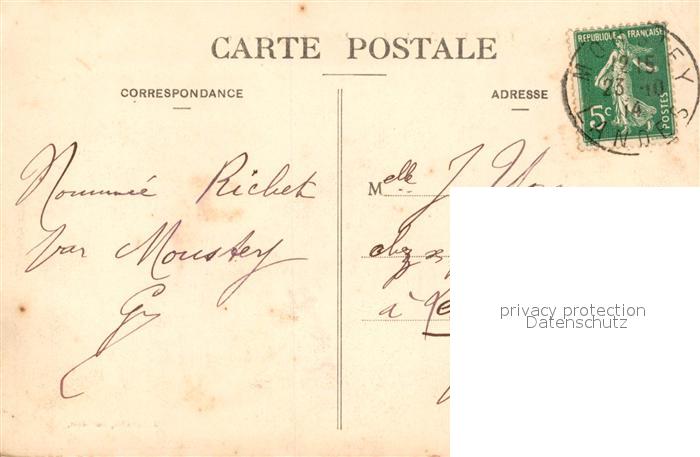 CARTE POSTALE
CORRESPONDANCE
ADRESSE
REPUBLIQUE FRANÇAISE
5c
POSTES
MOUSTEY
2 15
23 -10
14
LANDES
Nommé Richet
par Moustey
Melle J.
chez
à
privacy protection
Datenschutz